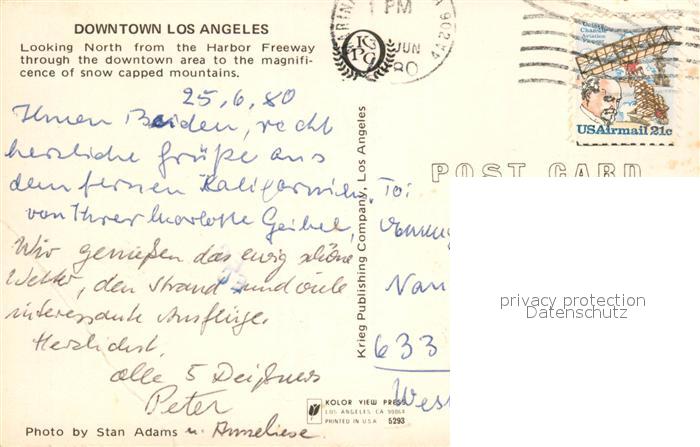 DOWNTOWN LOS ANGELES
Looking North from the Harbor Freeway
through the downtown area to the magnifi-
cence of snow capped mountains.
1 PM
JUN
80
KG
PC
Octave
Chanute
Aviation
Pioneer
USAirmail 21c
25.6.80
Ihnen Beiden, recht
herzliche Grüße aus
dem fernen Kalifornien,
von Ihrer Charlotte Geibel,
Wir genießen das ewig schöne
Wetter, den Strand und viele
interessante Ausflüge.
Herzlichst,
alle 5
Peter
u. Anneliese.
POST CARD
To:
633
Krieg Publishing Company, Los Angeles
privacy protection
Datenschutz
KOLOR VIEW PRESS
LOS ANGELES, CA 90064
PRINTED IN U.S.A. 5293
Photo by Stan Adams